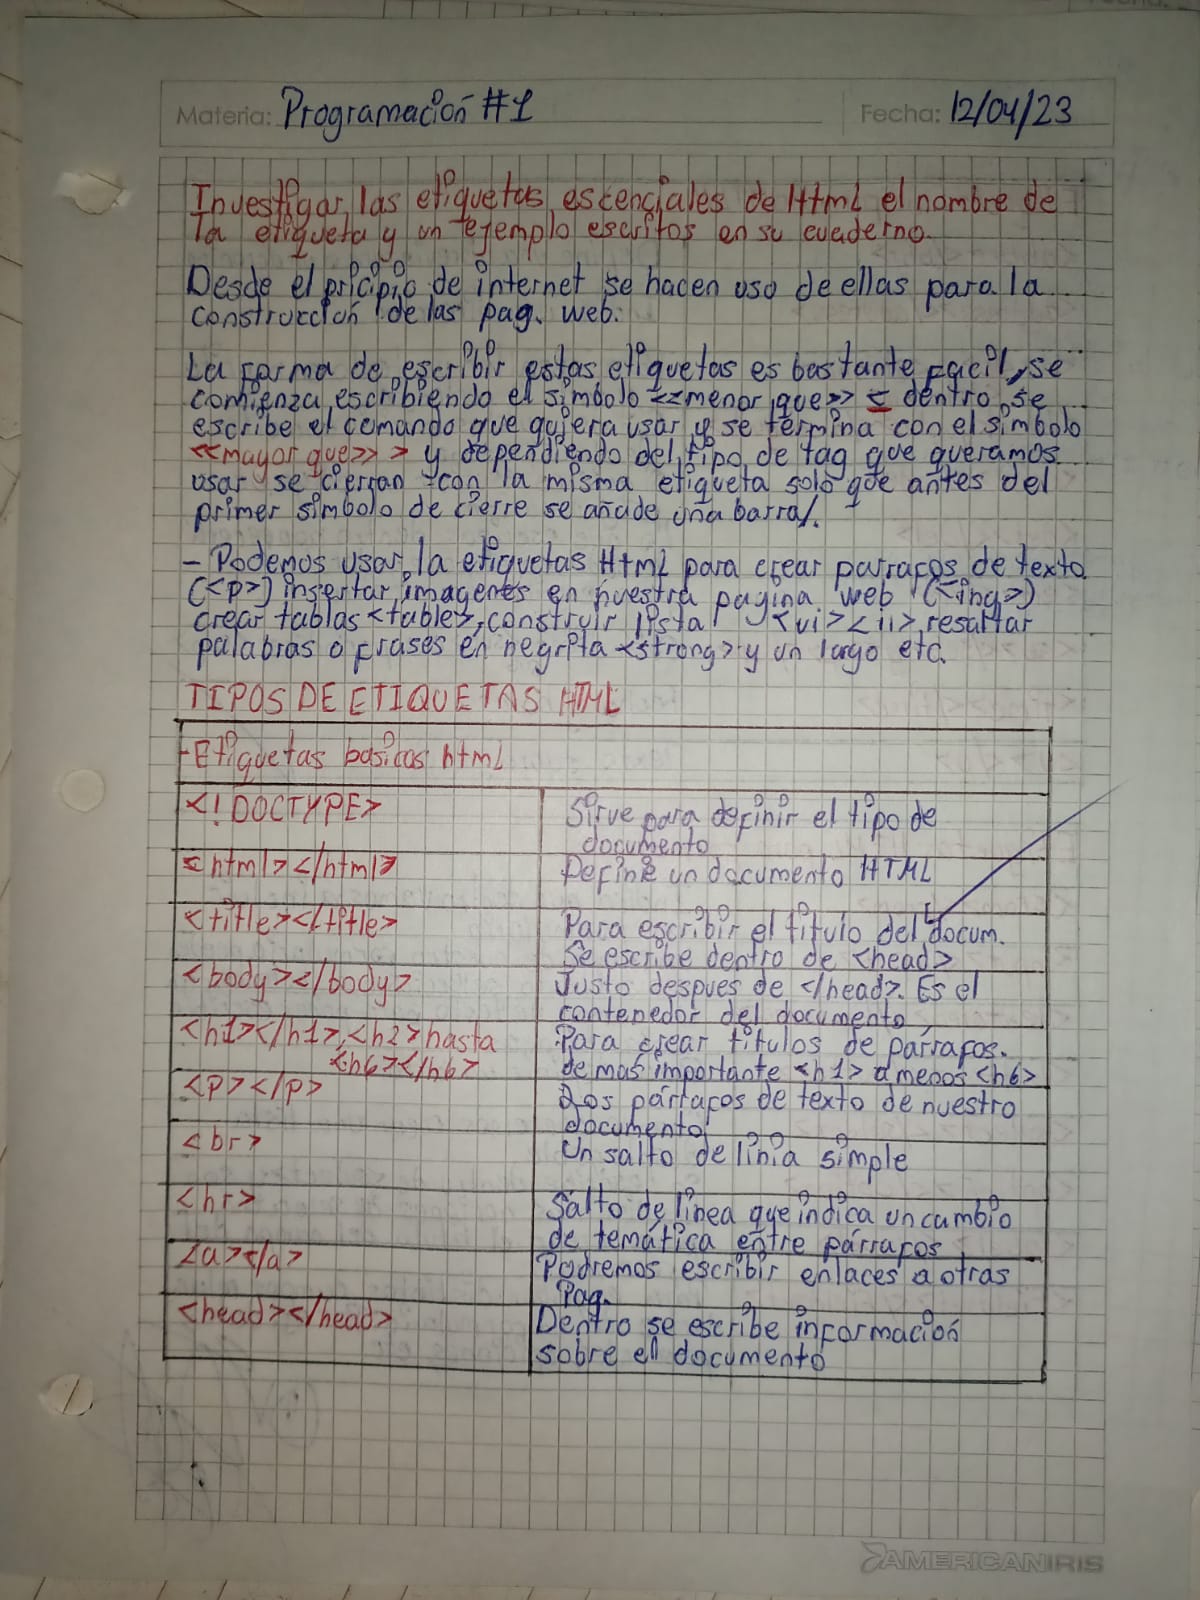 Materia: Programación #1 Fecha: 12/04/23
Investigar las etiquetas escenciales de Html el nombre de
la etiqueta y un ejemplo escritos en su cuaderno.
Desde el pricipio de internet se hacen uso de ellas para la
construcción de las pag. web.
La forma de escribir estas etiquetas es bastante facil, se
comienza escribiendo el simbolo <<menor que>> < dentro se
escribe el comando que quiera usar y se termina con el simbolo
<<mayor que>> > y dependiendo del tipo de tag que queramos
usar se cierran con la misma etiqueta solo que antes del
primer simbolo de cierre se añade una barra/.
- Podemos usar la etiquetas Html para crear parrafos de texto
(<p>) insertar imagenes en nuestra pagina web (<ing>)
crear tablas <table>, construir lista <ui><li>, resaltar
palabras o frases en negrita <strong> y un largo etc.
TIPOS DE ETIQUETAS HTML
- Etiquetas basicas html
<!DOCTYPE> Sirve para definir el tipo de
documento
<html></html> Define un documento HTML
<title></title> Para escribir el titulo del docum.
Se escribe dentro de <head>
<body></body> Justo despues de </head>. Es el
contenedor del documento
<h1></h1>, <h2> hasta Para crear titulos de párrafos.
<h6></h6> de mas importante <h1> a menos <h6>
<p></p> Los párrafos de texto de nuestro
documento
<br> Un salto de linia simple
<hr> Salto de linea que indica un cambio
de temática entre párrafos
<a></a> Podremos escribir enlaces a otras
Pag.
<head></head> Dentro se escribe información
sobre el documento
AMERICANIRIS